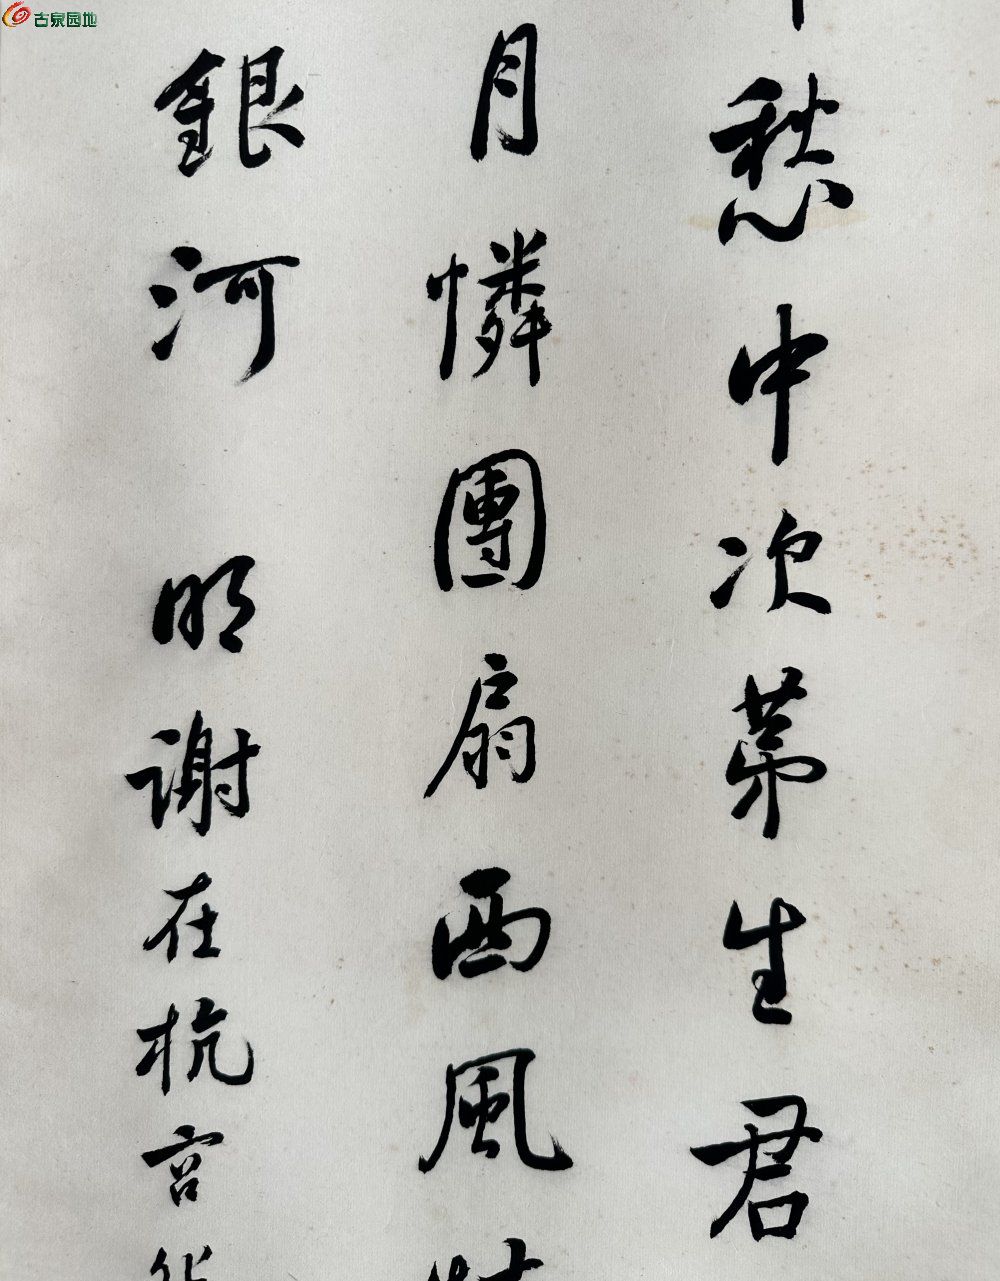 古泉园地
愁中次第生君
月憐團扇西風
銀河 明謝在杭宮